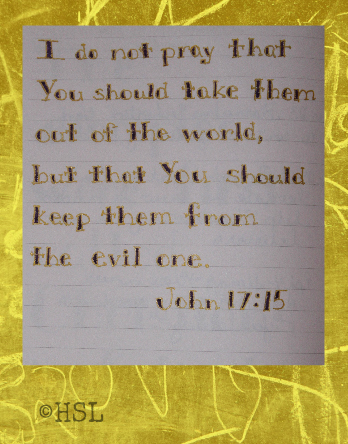 I do not pray that
You should take them
out of the world,
but that You should
keep them from
the evil one.
John 17:15
©HSL